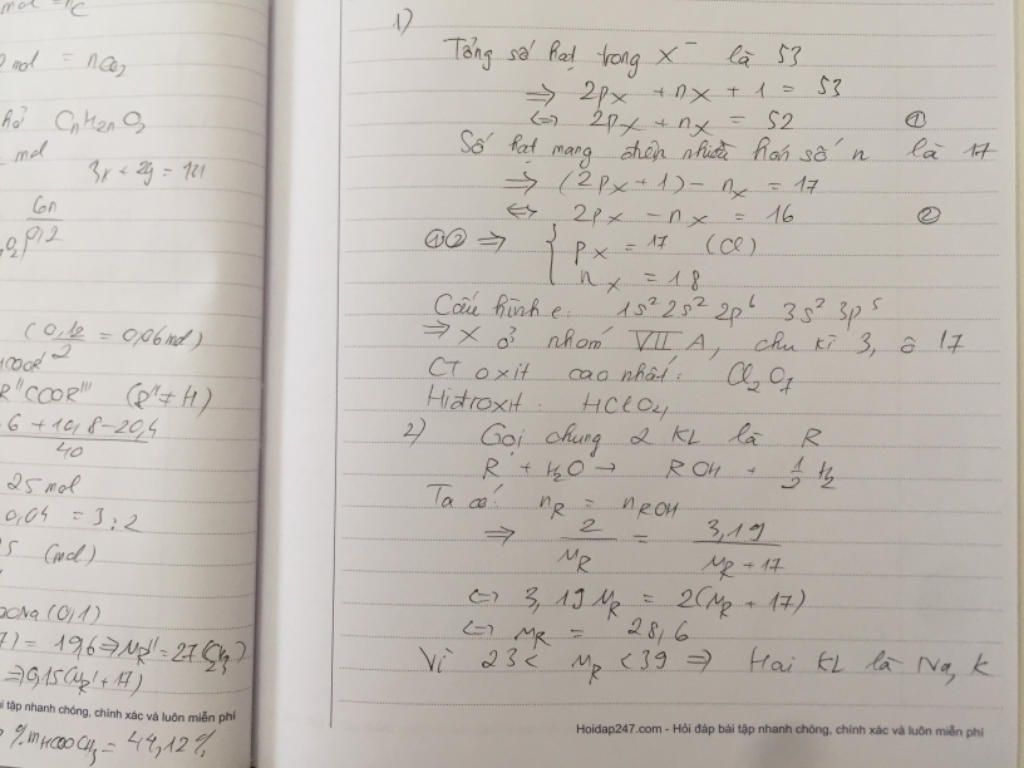 mol = nC
mol = nCO2
CnH2nO2
mol
3x + 2y = 
(0,12/2 = 0,06 mol)
R''COOR''' (R'' ≠ H)
6 + 10,8 - 20,4
40
25 mol
0,04 = 3 : 2
(mol)
(0,1)
= 19,6 ⇒ MR'' = 27
⇒ 0,15(MR' + 17)
i tập nhanh chóng, chính xác và luôn miễn phí
%mHCOOCH3 = 44,12%
1)
Tổng số hạt trong X⁻ là 53
⇒ 2pX + nX + 1 = 53
⇔ 2pX + nX = 52 ①
Số hạt mang điện nhiều hơn số n là 17
⇒ (2pX + 1) - nX = 17
⇔ 2pX - nX = 16 ②
①② ⇒ { pX = 17 (Cl)
nX = 18
Cấu hình e: 1s² 2s² 2p⁶ 3s² 3p⁵
⇒ X ở nhóm VII A, chu kì 3, ô 17
CT oxit cao nhất: Cl2O7
Hidroxit: HClO4
2) Gọi chung 2 KL là R
R + H2O → ROH + 1/2 H2
Ta có: nR = nROH
⇒ 2/MR = 3,19/(MR + 17)
⇔ 3,19 MR = 2(MR + 17)
⇔ MR = 28,6
Vì 23 < MR < 39 ⇒ Hai KL là Na, K
Hoidap247.com - Hỏi đáp bài tập nhanh chóng, chính xác và luôn miễn phí